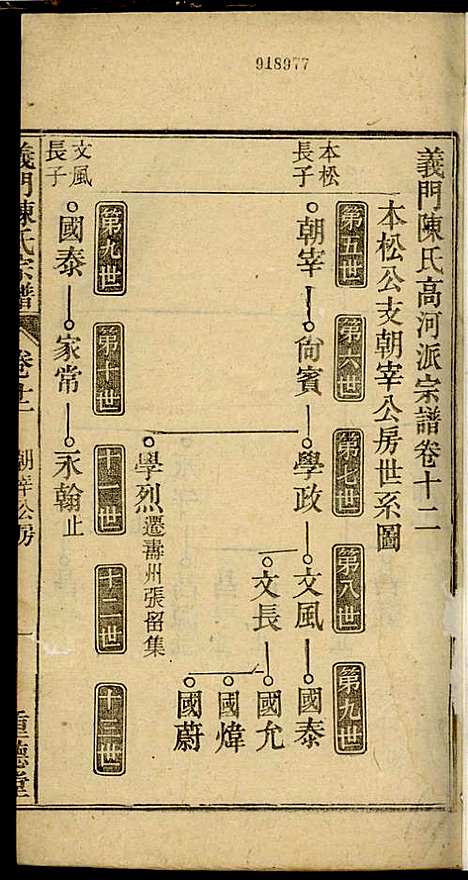 918977
義門陳氏高河派宗譜卷十二
本松公支朝宰公房世系圖
第五世 第六世 第七世 第八世 第九世
本松長子
朝宰 尙賓 學政 文風 國泰
文長 國允
國煒
國蔚
學烈 遷壽州張留集
第九世 第十世 十一世 十二世 十三世
文風長子
國泰 家常 永翰止
義門陳氏宗譜 卷十二 朝宰公房 一 重德堂